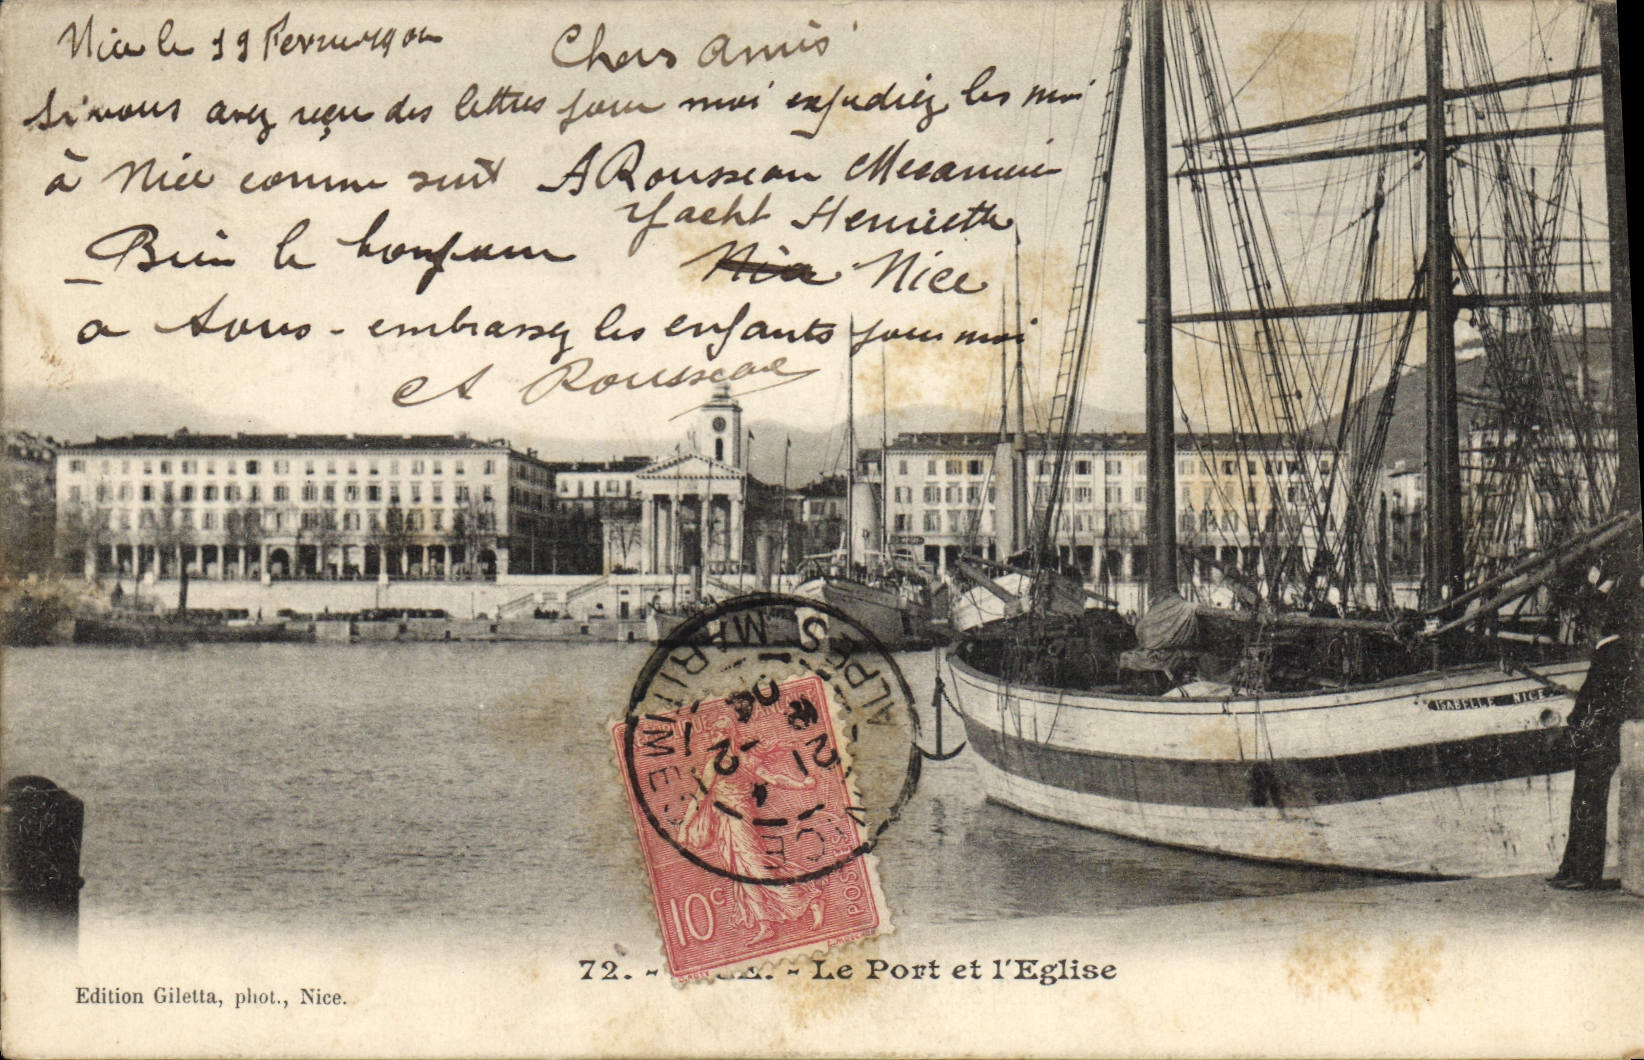 Nice le 19 Fevrier 190
Chers Amis
Si vous avez reçu des lettres pour moi expediez les moi
à Nice comme suit A Rousseau Mecanicien
Yacht Henriette
Bien le bonjour Nice Nice
a tous - embrassez les enfants pour moi
A Rousseau
ISABELLE NICE
ALPES MARITIMES
10C
POSTES
72. - Le Port et l'Eglise
Edition Giletta, phot., Nice.